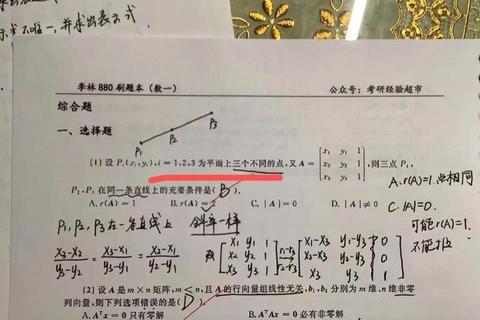 示式不唯一,并求出表示式
李林 880 刷题本 (数一)
公众号: 考研经验超市
综合题
一、选择题
P₁ P₂ P₃
(1) 设 Pᵢ(xᵢ,yᵢ),i=1,2,3 为平面上三个不同的点,又 A = [x₁ y₁ 1; x₂ y₂ 1; x₃ y₃ 1],则三点 P₁,
P₂,P₃ 在同一条直线上的充要条件是( B ).
A. r(A)=1 B. r(A)=2 C. |A|=0 D. |A|≠0
A. r(A)=1 点相同
C. |A|=0.
可能r(A)=1.
不能
P₁, P₂, P₃ 在一条直线上 斜率一样
(x₃-x₂)/(y₃-y₂) = (x₃-x₁)/(y₃-y₁) = (x₂-x₁)/(y₂-y₁)
[x₁ y₁ 1; x₂ y₂ 1; x₃ y₃ 1] → [x₁-x₃ y₁-y₃ 0; x₂-x₃ y₂-y₃ 0; x₃ y₃ 1]
(2) 设 A 是 m×n 矩阵, m<n, 且 A 的行向量组线性无关, b₁, b₂ 分别为 m 维、n 维非零
列向量,则下列选项错误的是( D ).
A. Aᵀx = 0 只有零解 B. AᵀAx = 0 必有非零解